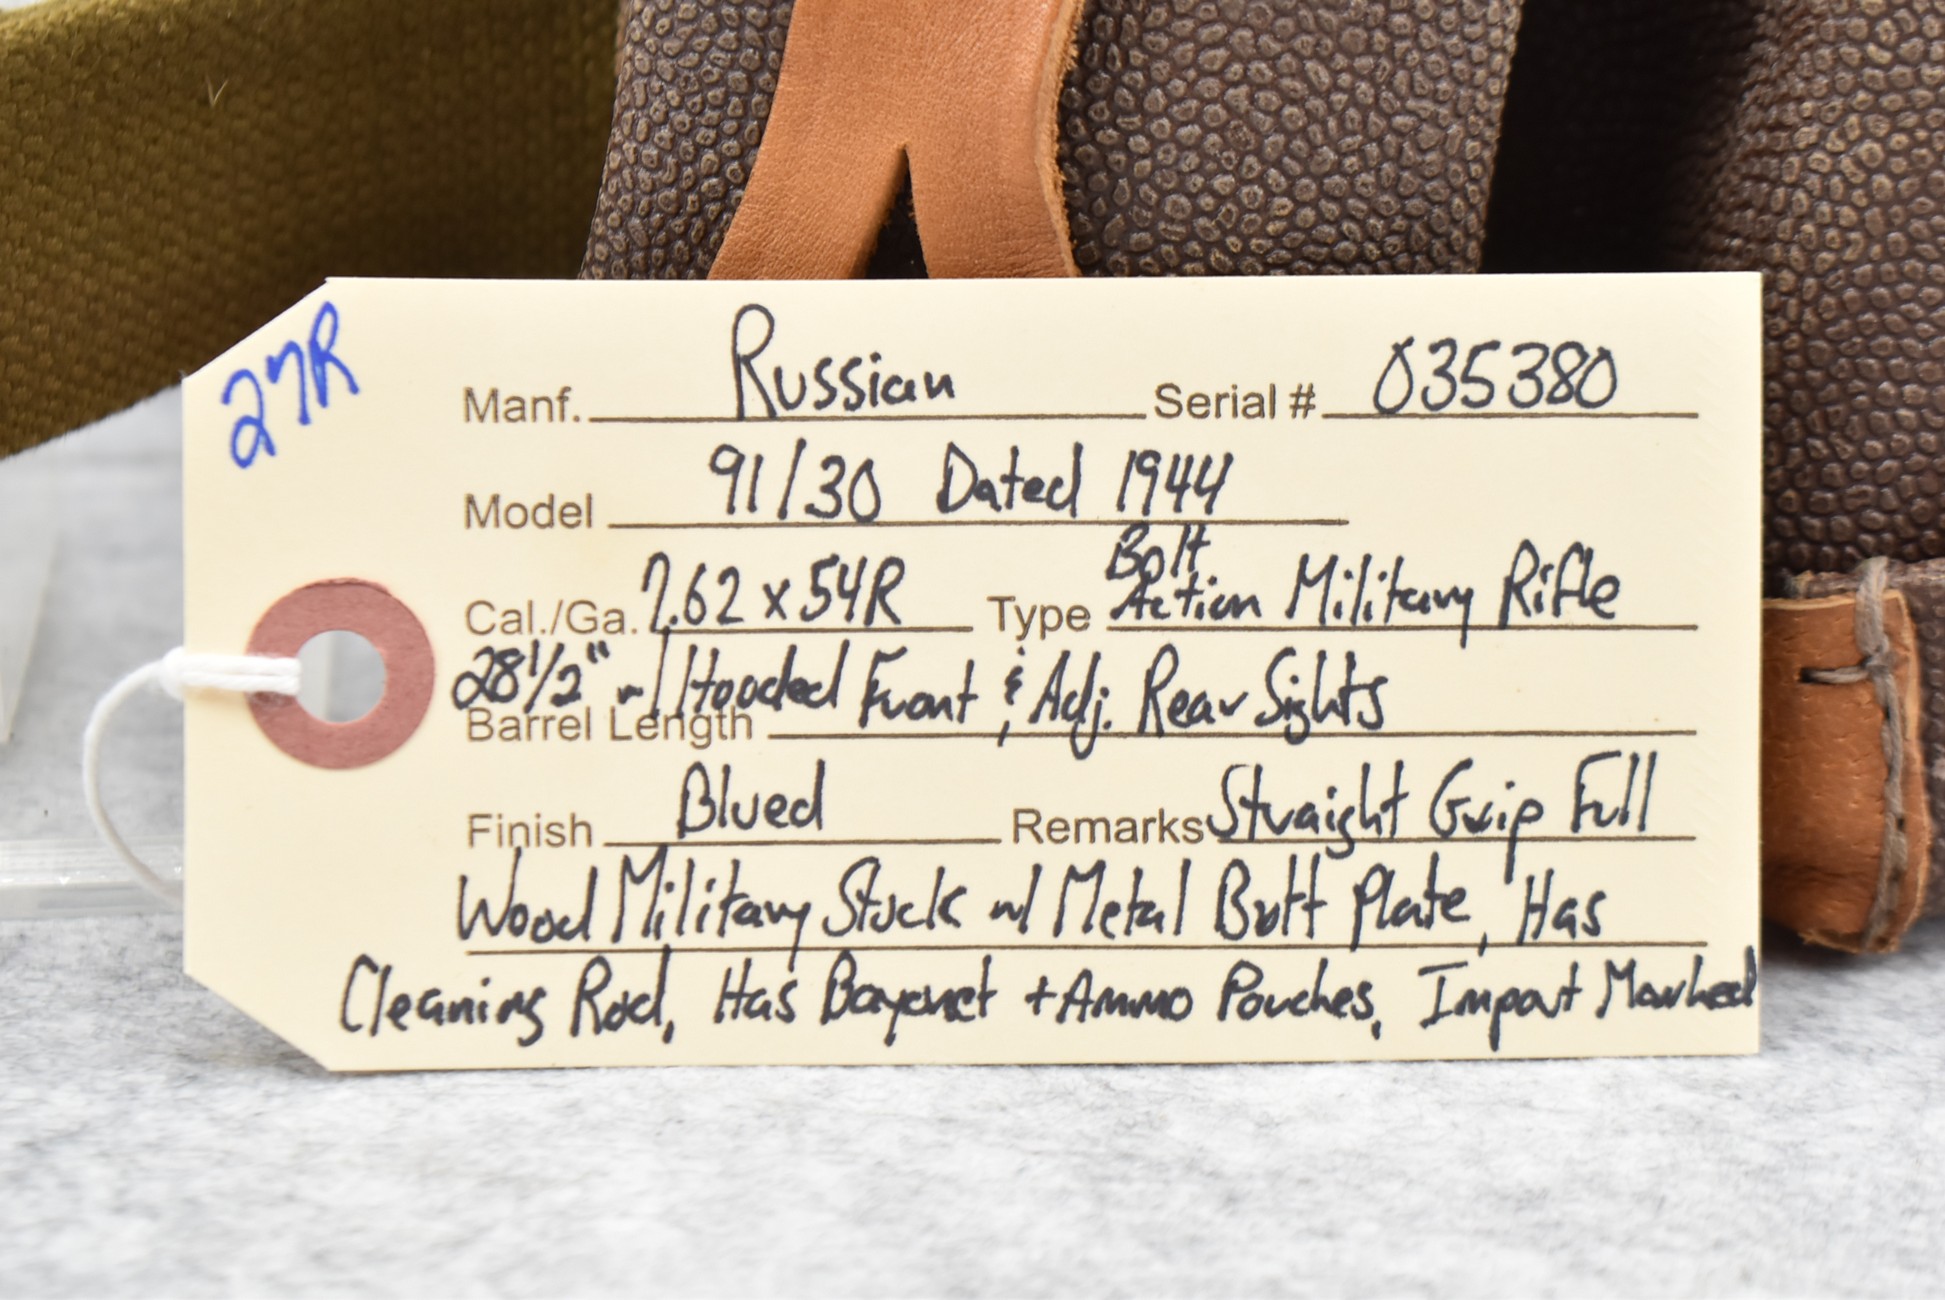 27R
Manf. Russian Serial # 035380
Model 91/30 Dated 1944
Cal./Ga. 7.62 x 54R Type Bolt Action Military Rifle
28 1/2" w/ Hooded Front & Adj. Rear Sights
Barrel Length
Finish Blued Remarks Straight Grip Full
Wood Military Stock w/ Metal Butt Plate, Has
Cleaning Rod, Has Bayonet + Ammo Pouches, Import Marked